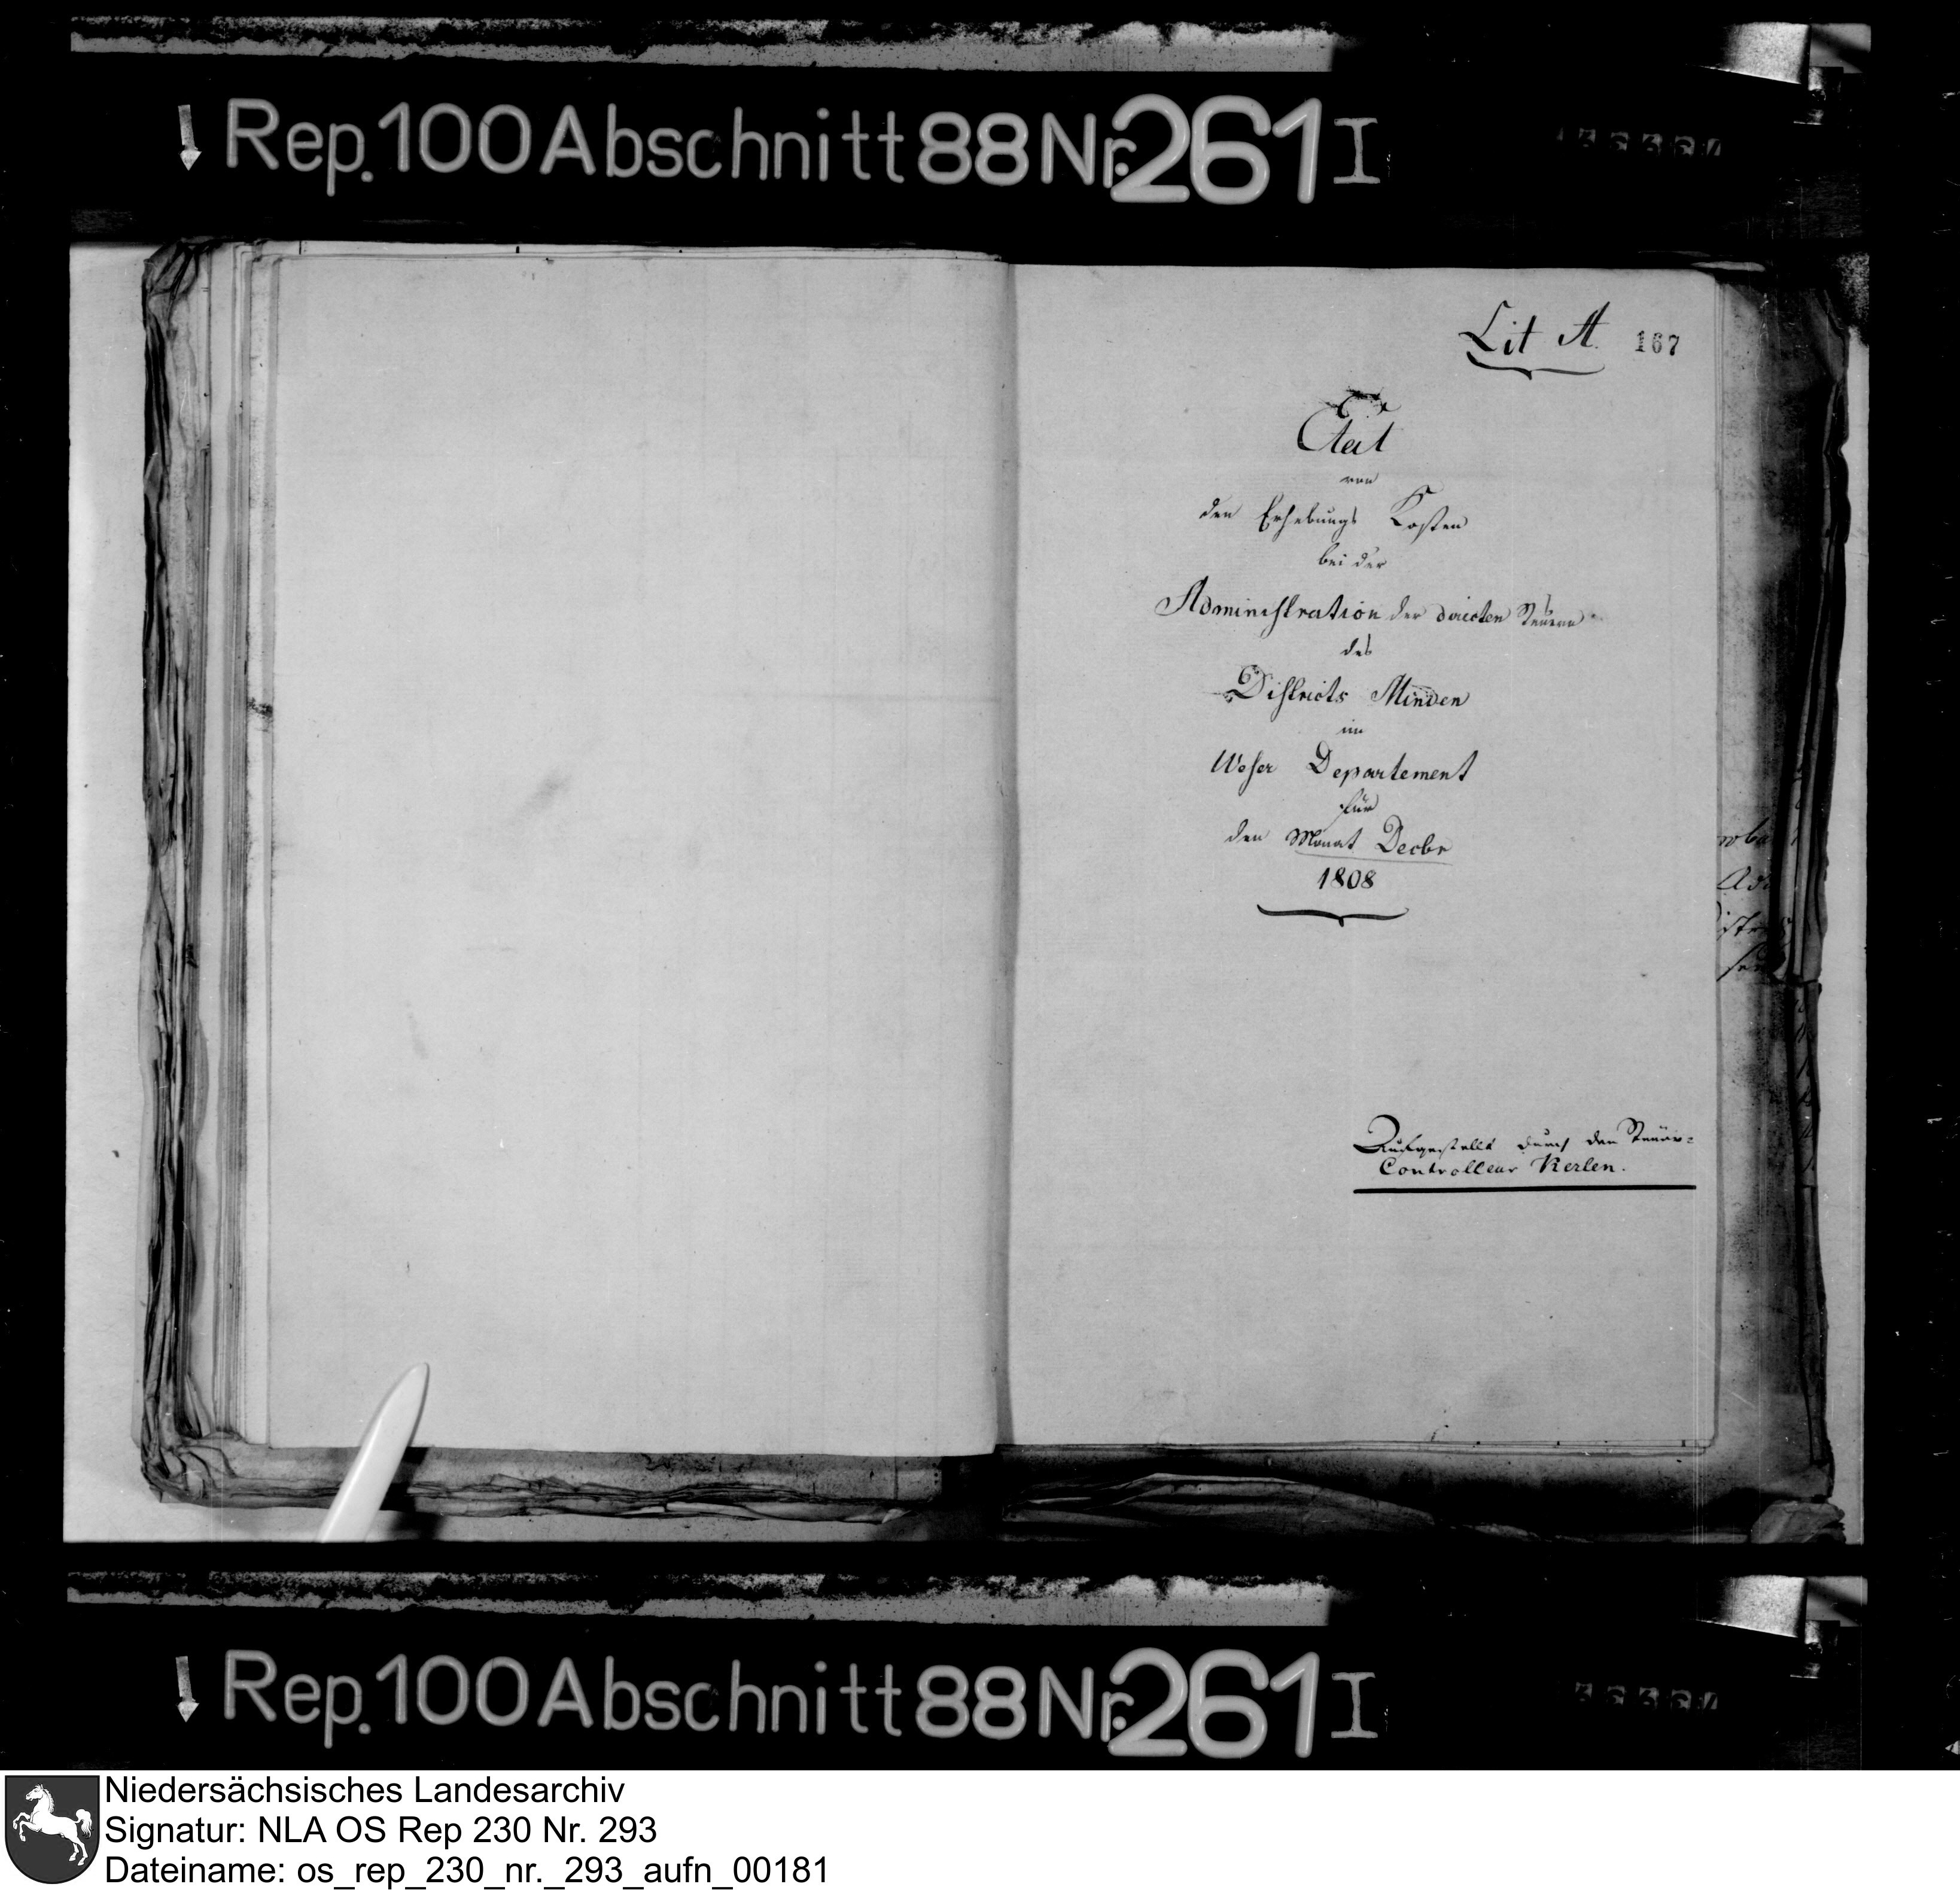 Rep. 100 Abschnitt 88 Nr. 261 I
Lit A. 167
Etat
von
den Erhebungs Kosten
bei der
Administration der directen Steuern
des
Districts Minden
im
Weser Departement
für
den Monat Decbr
1808
Aufgestellt durch den Steuer=
Controlleur Kerlen.
Rep. 100 Abschnitt 88 Nr. 261 I
Niedersächsisches Landesarchiv
Signatur: NLA OS Rep 230 Nr. 293
Dateiname: os_rep_230_nr._293_aufn_00181